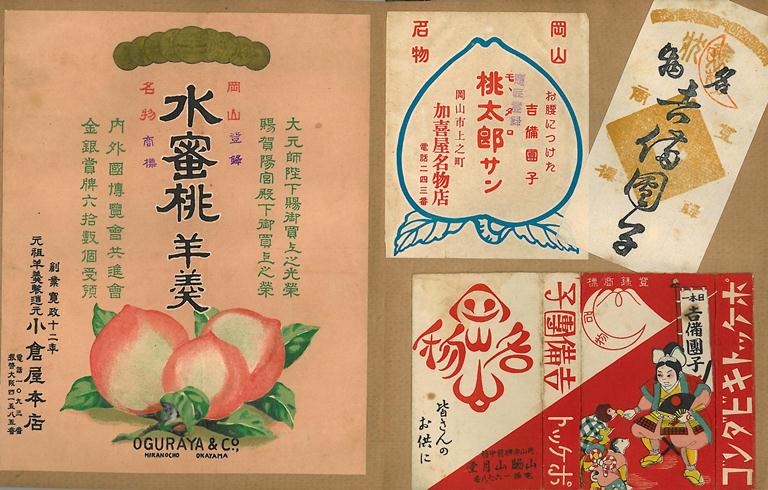 岡山 登錄
名物 商標
水蜜桃羊羹
大元帥陛下賜御買上之光榮
賜賀陽宮殿下御買上之榮
內外國博覽會共進會
金銀賞牌六拾數個受領
創業寬政十二年
元祖羊羹製造元 小倉屋本店
電話一〇九三番
振替大阪四一五八五番
OGURAYA & Co.,
HIRANOCHO OKAYAMA
岡山
名物
お腰につけた
吉備團子
桃太郎サン
モヽタロ
岡山市上之町
加喜屋名物店
電話二四三番
名物
吉備團子
登錄商標
名物
皆さんの
お供に
山陽山月堂
吉備團子
ポケット
登錄商標
名物
日本一
吉備團子
ポケットキビダンゴ